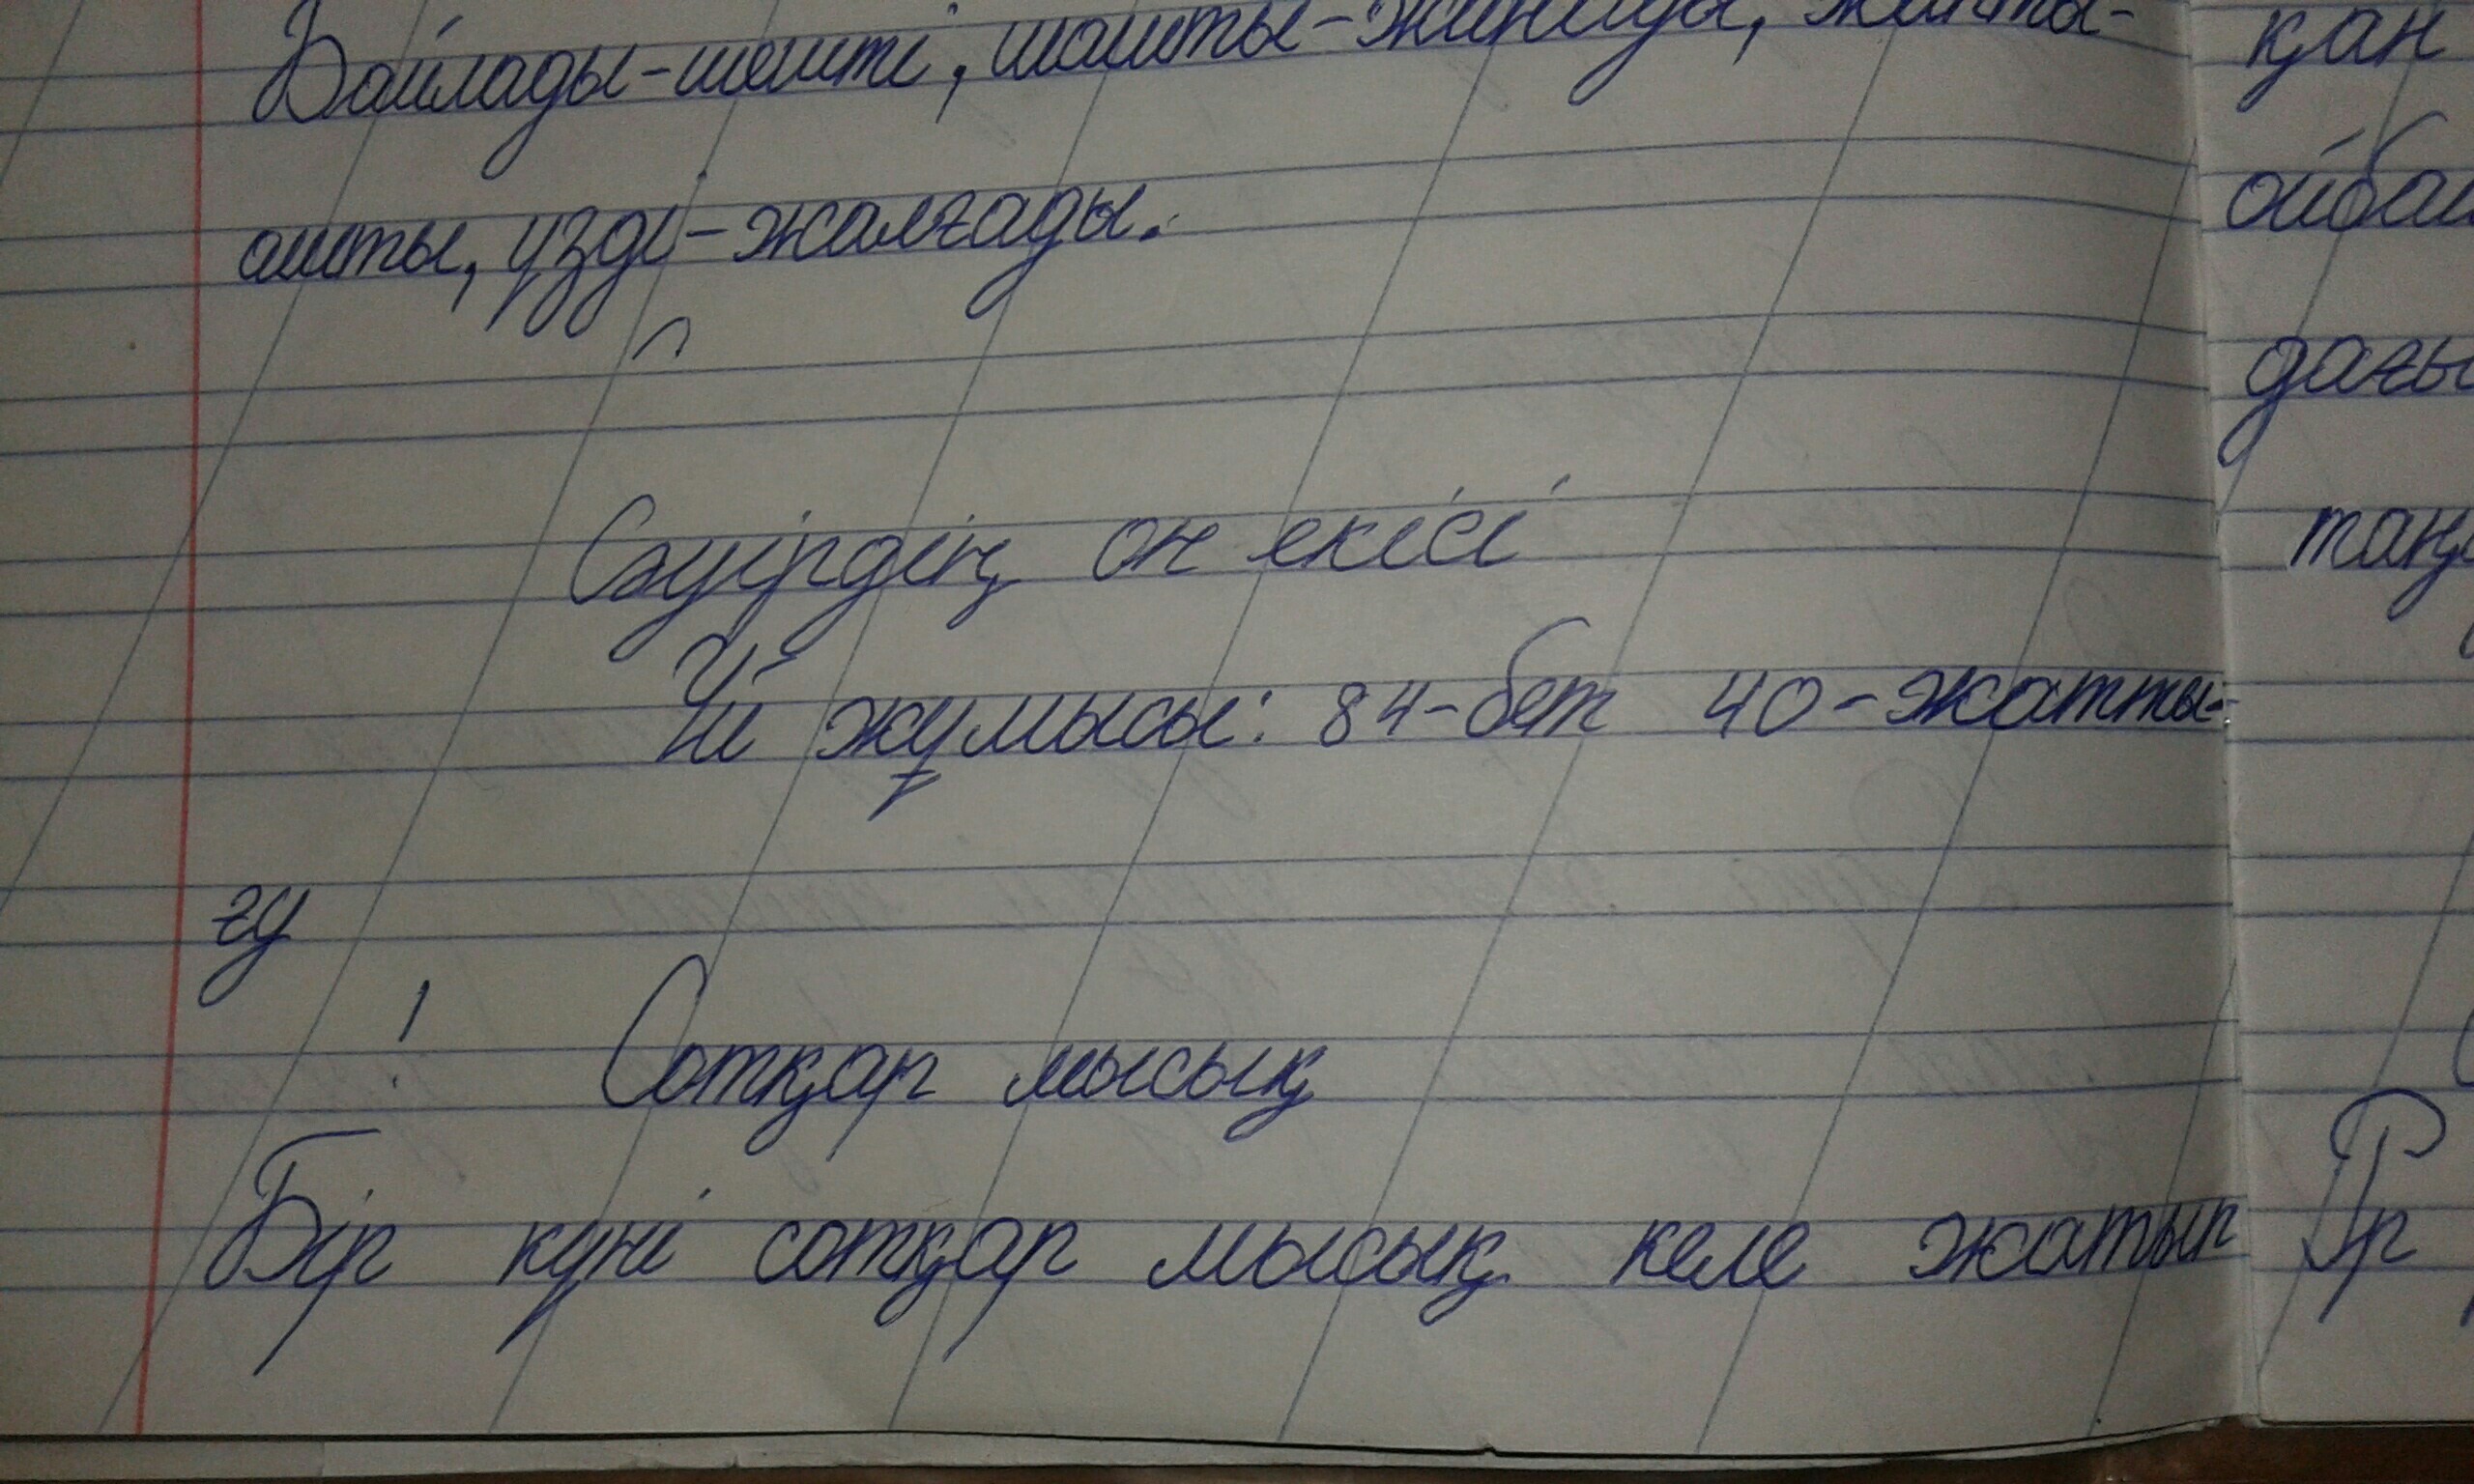 Байлады-шешті, шашты-жинады, жапты-
ашты, үзді-жалғады.
Сәуірдің он екісі
Үй жұмысы: 84-бет 40-жатты-
ғу
! Сотқар мысық
Бір күні сотқар мысық келе жатыр
қан
ойбай
дағы
Рр